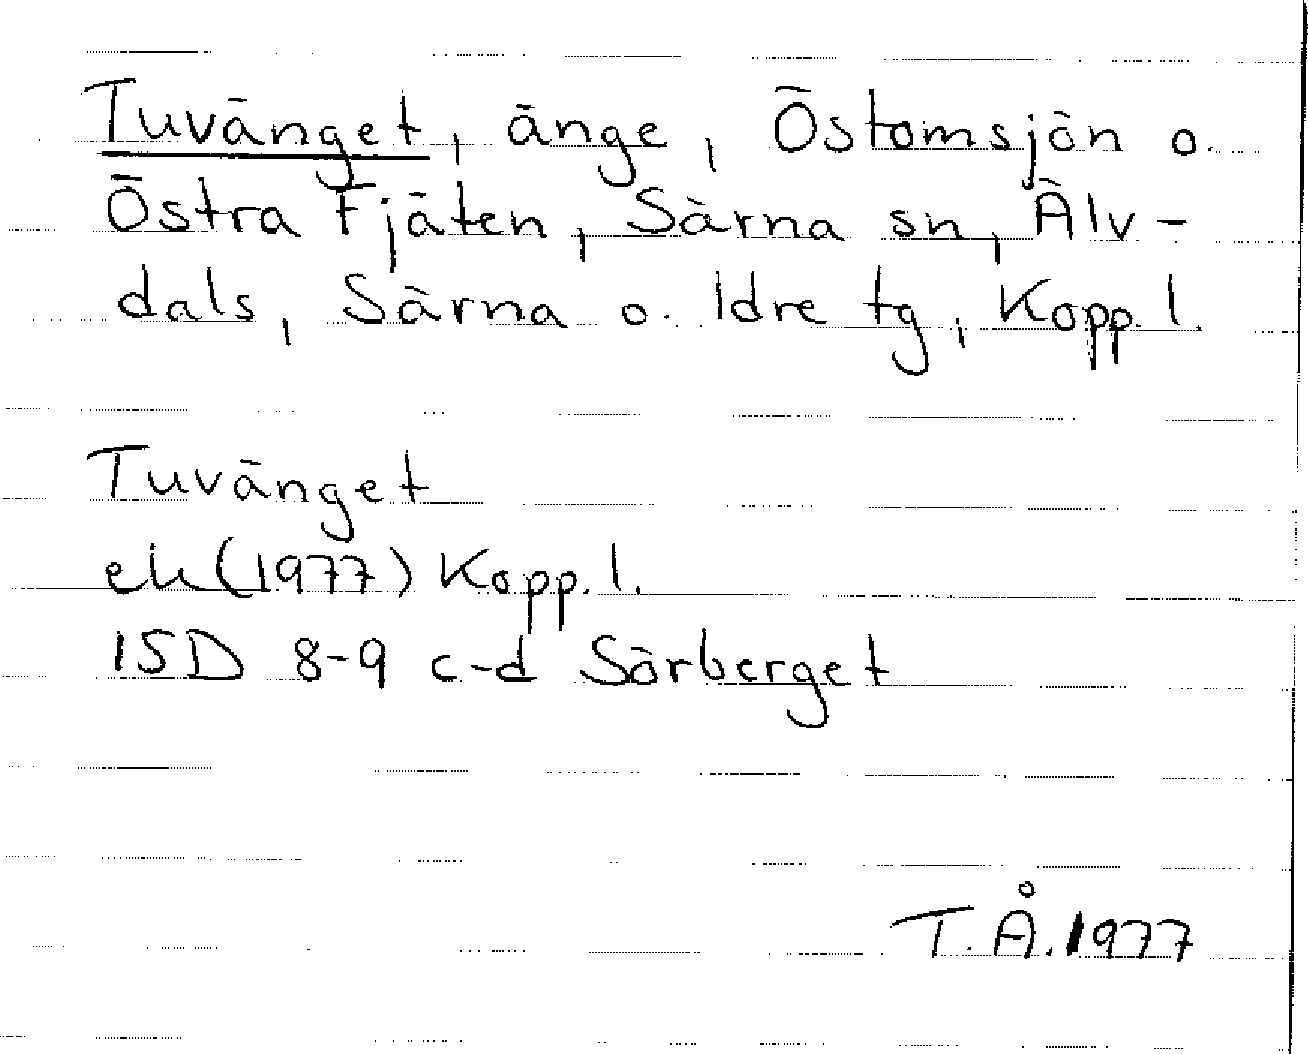 Tuvänget, änge, Östomsjön o.
Östra Fjäten, Särna sn, Älv-
dals, Särna o. Idre tg, Kopp. l.
Tuvänget
ek (1977) Kopp. l.
15D 8-9 c-d Sörberget
T.Å. 1977